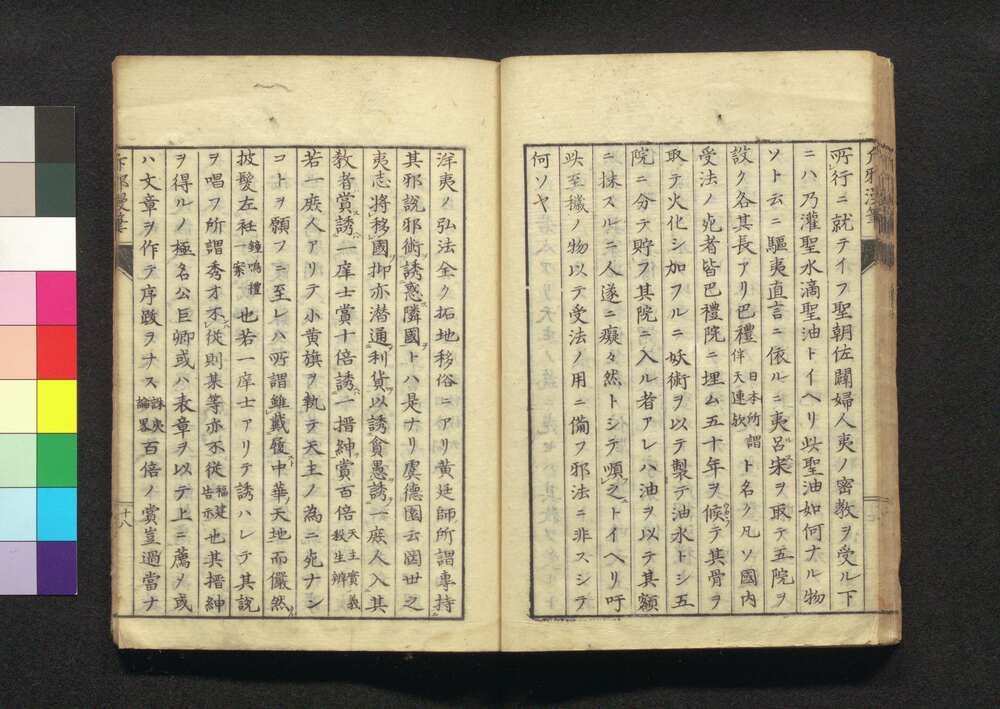 所行ニ就テイフ聖朝佐闢婦人夷ノ密教ヲ受ル下
ニハ乃灌聖水滴聖油トイヘリ此聖油如何ナル物
ソト云ニ驅夷直言ニ依ルニ夷呂宋ヲ取テ五院ヲ
設ク各其長アリ巴禮日本所謂伴天連欤ト名ク凡ソ國内
受法ノ死者皆巴禮院ニ埋ム五十年ヲ候テ其骨ヲ
取テ火化シ加フルニ妖術ヲ以テ製テ油水トシ五
院ニ分テ貯フ其院ニ入ル者アレハ油ヲ以テ其額
ニ抹スルニ人遂ニ癡々然トシテ順之トイヘリ吁
此至穢ノ物以テ受法ノ用ニ備フ邪法ニ非スシテ
何ソヤ
洋夷ノ弘法全ク拓地移俗ニアリ黄廷師所謂專持
其邪説邪術誘惑隣國トハ是ナリ虞德園云圖丗之
夷志將移國抑亦潜通利貨以誘貪愚誘一庶人入其
教者賞誘一庠士賞十倍誘一搢紳賞百倍天主實義殺生辨
若一庶人アリテ小黄旗ヲ執テ天主ノ為ニ死ナン
コトヲ願フニ至レハ所謂雖戴履中華天地而儼然
披髮左衽鐘鳴禮案也若一庠士アリテ誘ハレテ其説
ヲ唱フ所謂秀才不從則某等亦不從福建告示也其搢紳
ヲ得ルノ極名公巨卿或ハ表章ヲ以テ上ニ薦メ或
ハ文章ヲ作テ序跋ヲナス誅夷論畧百倍ノ賞豈過當ナ
十八